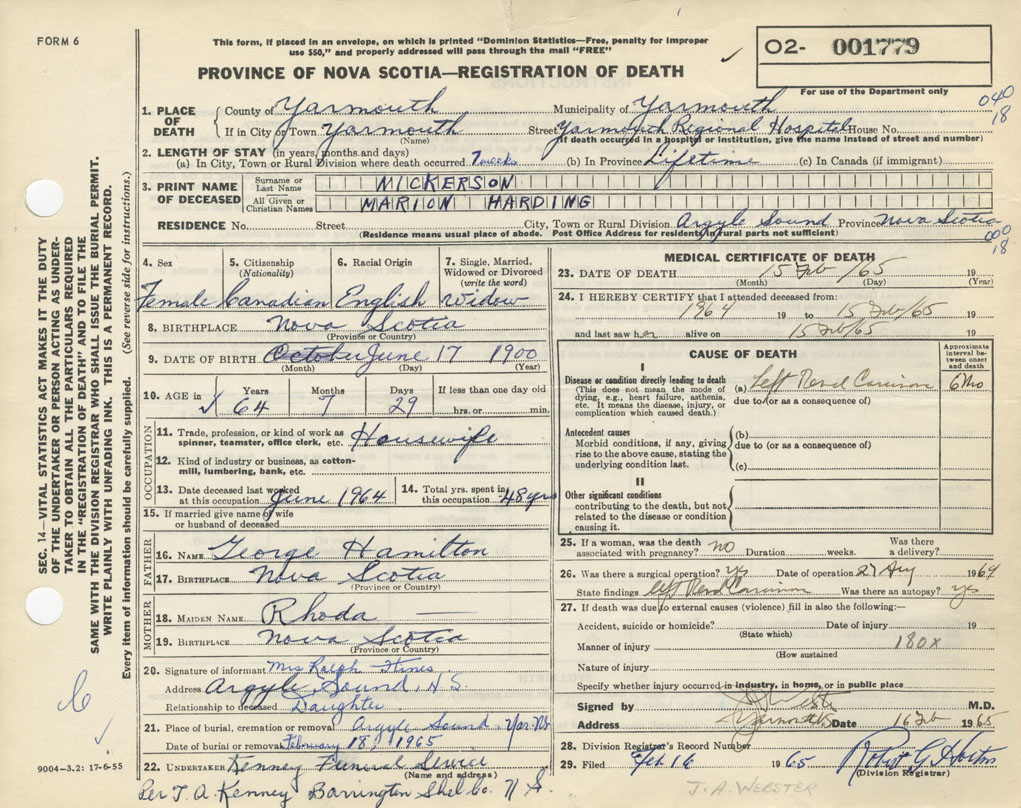 FORM 6
This form, if placed in an envelope, on which is printed "Dominion Statistics—Free, penalty for improper
use $50," and properly addressed will pass through the mail "FREE"
PROVINCE OF NOVA SCOTIA—REGISTRATION OF DEATH
O2- 001779
For use of the Department only
040
18
1. PLACE OF DEATH
County of Yarmouth Municipality of Yarmouth
If in City or Town Yarmouth Street Yarmouth Regional Hospital House No.
(Name) (If death occurred in a hospital or institution, give the name instead of street and number)
2. LENGTH OF STAY (in years, months and days)
(a) In City, Town or Rural Division where death occurred 7 weeks (b) In Province Lifetime (c) In Canada (if immigrant)
3. PRINT NAME OF DECEASED
Surname or Last Name MICKERSON
All Given or Christian Names MARION HARDING
RESIDENCE No. Street City, Town or Rural Division Argyle Sound Province Nova Scotia
(Residence means usual place of abode. Post Office Address for residents in rural parts not sufficient)
000
18
4. Sex
Female
5. Citizenship
(Nationality)
Canadian
6. Racial Origin
English
7. Single, Married,
Widowed or Divorced
(write the word)
Widow
8. BIRTHPLACE Nova Scotia
(Province or Country)
9. DATE OF BIRTH October June 17 1900
(Month) (Day) (Year)
10. AGE in
Years Months Days If less than one day old
64 7 29 hrs. or min.
OCCUPATION
11. Trade, profession, or kind of work as
spinner, teamster, office clerk, etc. Housewife
12. Kind of industry or business, as cotton-
mill, lumbering, bank, etc.
13. Date deceased last worked
at this occupation June 1964
14. Total yrs. spent in
this occupation 48 yrs
15. If married give name of wife
or husband of deceased
FATHER
16. NAME George Hamilton
17. BIRTHPLACE Nova Scotia
(Province or Country)
MOTHER
18. MAIDEN NAME Rhoda
19. BIRTHPLACE Nova Scotia
(Province or Country)
20. Signature of informant Mrs Ralph Hines
Address Argyle Sound, N S
Relationship to deceased Daughter
21. Place of burial, cremation or removal Argyle Sound - Yar. NS
Date of burial or removal February 18, 1965
22. UNDERTAKER Kenney Funeral Service
(Name and address)
Per J. A Kenney Barrington Shel Co. N S.
9004—3.2: 17-6-55
SEC. 14—VITAL STATISTICS ACT MAKES IT THE DUTY
OF THE UNDERTAKER OR PERSON ACTING AS UNDER-
TAKER TO OBTAIN ALL THE PARTICULARS REQUIRED
IN THE "REGISTRATION OF DEATH" AND TO FILE THE
SAME WITH THE DIVISION REGISTRAR WHO SHALL ISSUE THE BURIAL PERMIT.
WRITE PLAINLY WITH UNFADING INK. THIS IS A PERMANENT RECORD.
Every item of information should be carefully supplied. (See reverse side for instructions.)
MEDICAL CERTIFICATE OF DEATH
23. DATE OF DEATH 15 Feb /65 19
(Month) (Day) (Year)
24. I HEREBY CERTIFY that I attended deceased from:
1964 19 to 15 Feb/65 19
and last saw her alive on 15 Feb/65 19
CAUSE OF DEATH
Approximate
interval be-
tween onset
and death
I
Disease or condition directly leading to death
(This does not mean the mode of
dying, e.g., heart failure, asthenia,
etc. It means the disease, injury, or
complication which caused death.)
(a) Left Renal Carcinom 6 Mo
due to (or as a consequence of)
Antecedent causes
Morbid conditions, if any, giving
rise to the above cause, stating the
underlying condition last.
(b)
due to (or as a consequence of)
(c)
II
Other significant conditions
contributing to the death, but not
related to the disease or condition
causing it.
25. If a woman, was the death
associated with pregnancy? no Duration weeks. Was there
a delivery?
26. Was there a surgical operation? yes Date of operation 27 Aug 1964
State findings left Renal Carcinom Was there an autopsy? yes
27. If death was due to external causes (violence) fill in also the following:—
Accident, suicide or homicide? Date of injury 19
(State which)
Manner of injury 180X
(How sustained
Nature of injury
Specify whether injury occurred in industry, in home, or in public place
Signed by M.D.
Address Yarmouth Date 16 Feb 1965
28. Division Registrar's Record Number
29. Filed Feb 16 1965 Robert G Horton
(Division Registrar)
J. A. WEBSTER